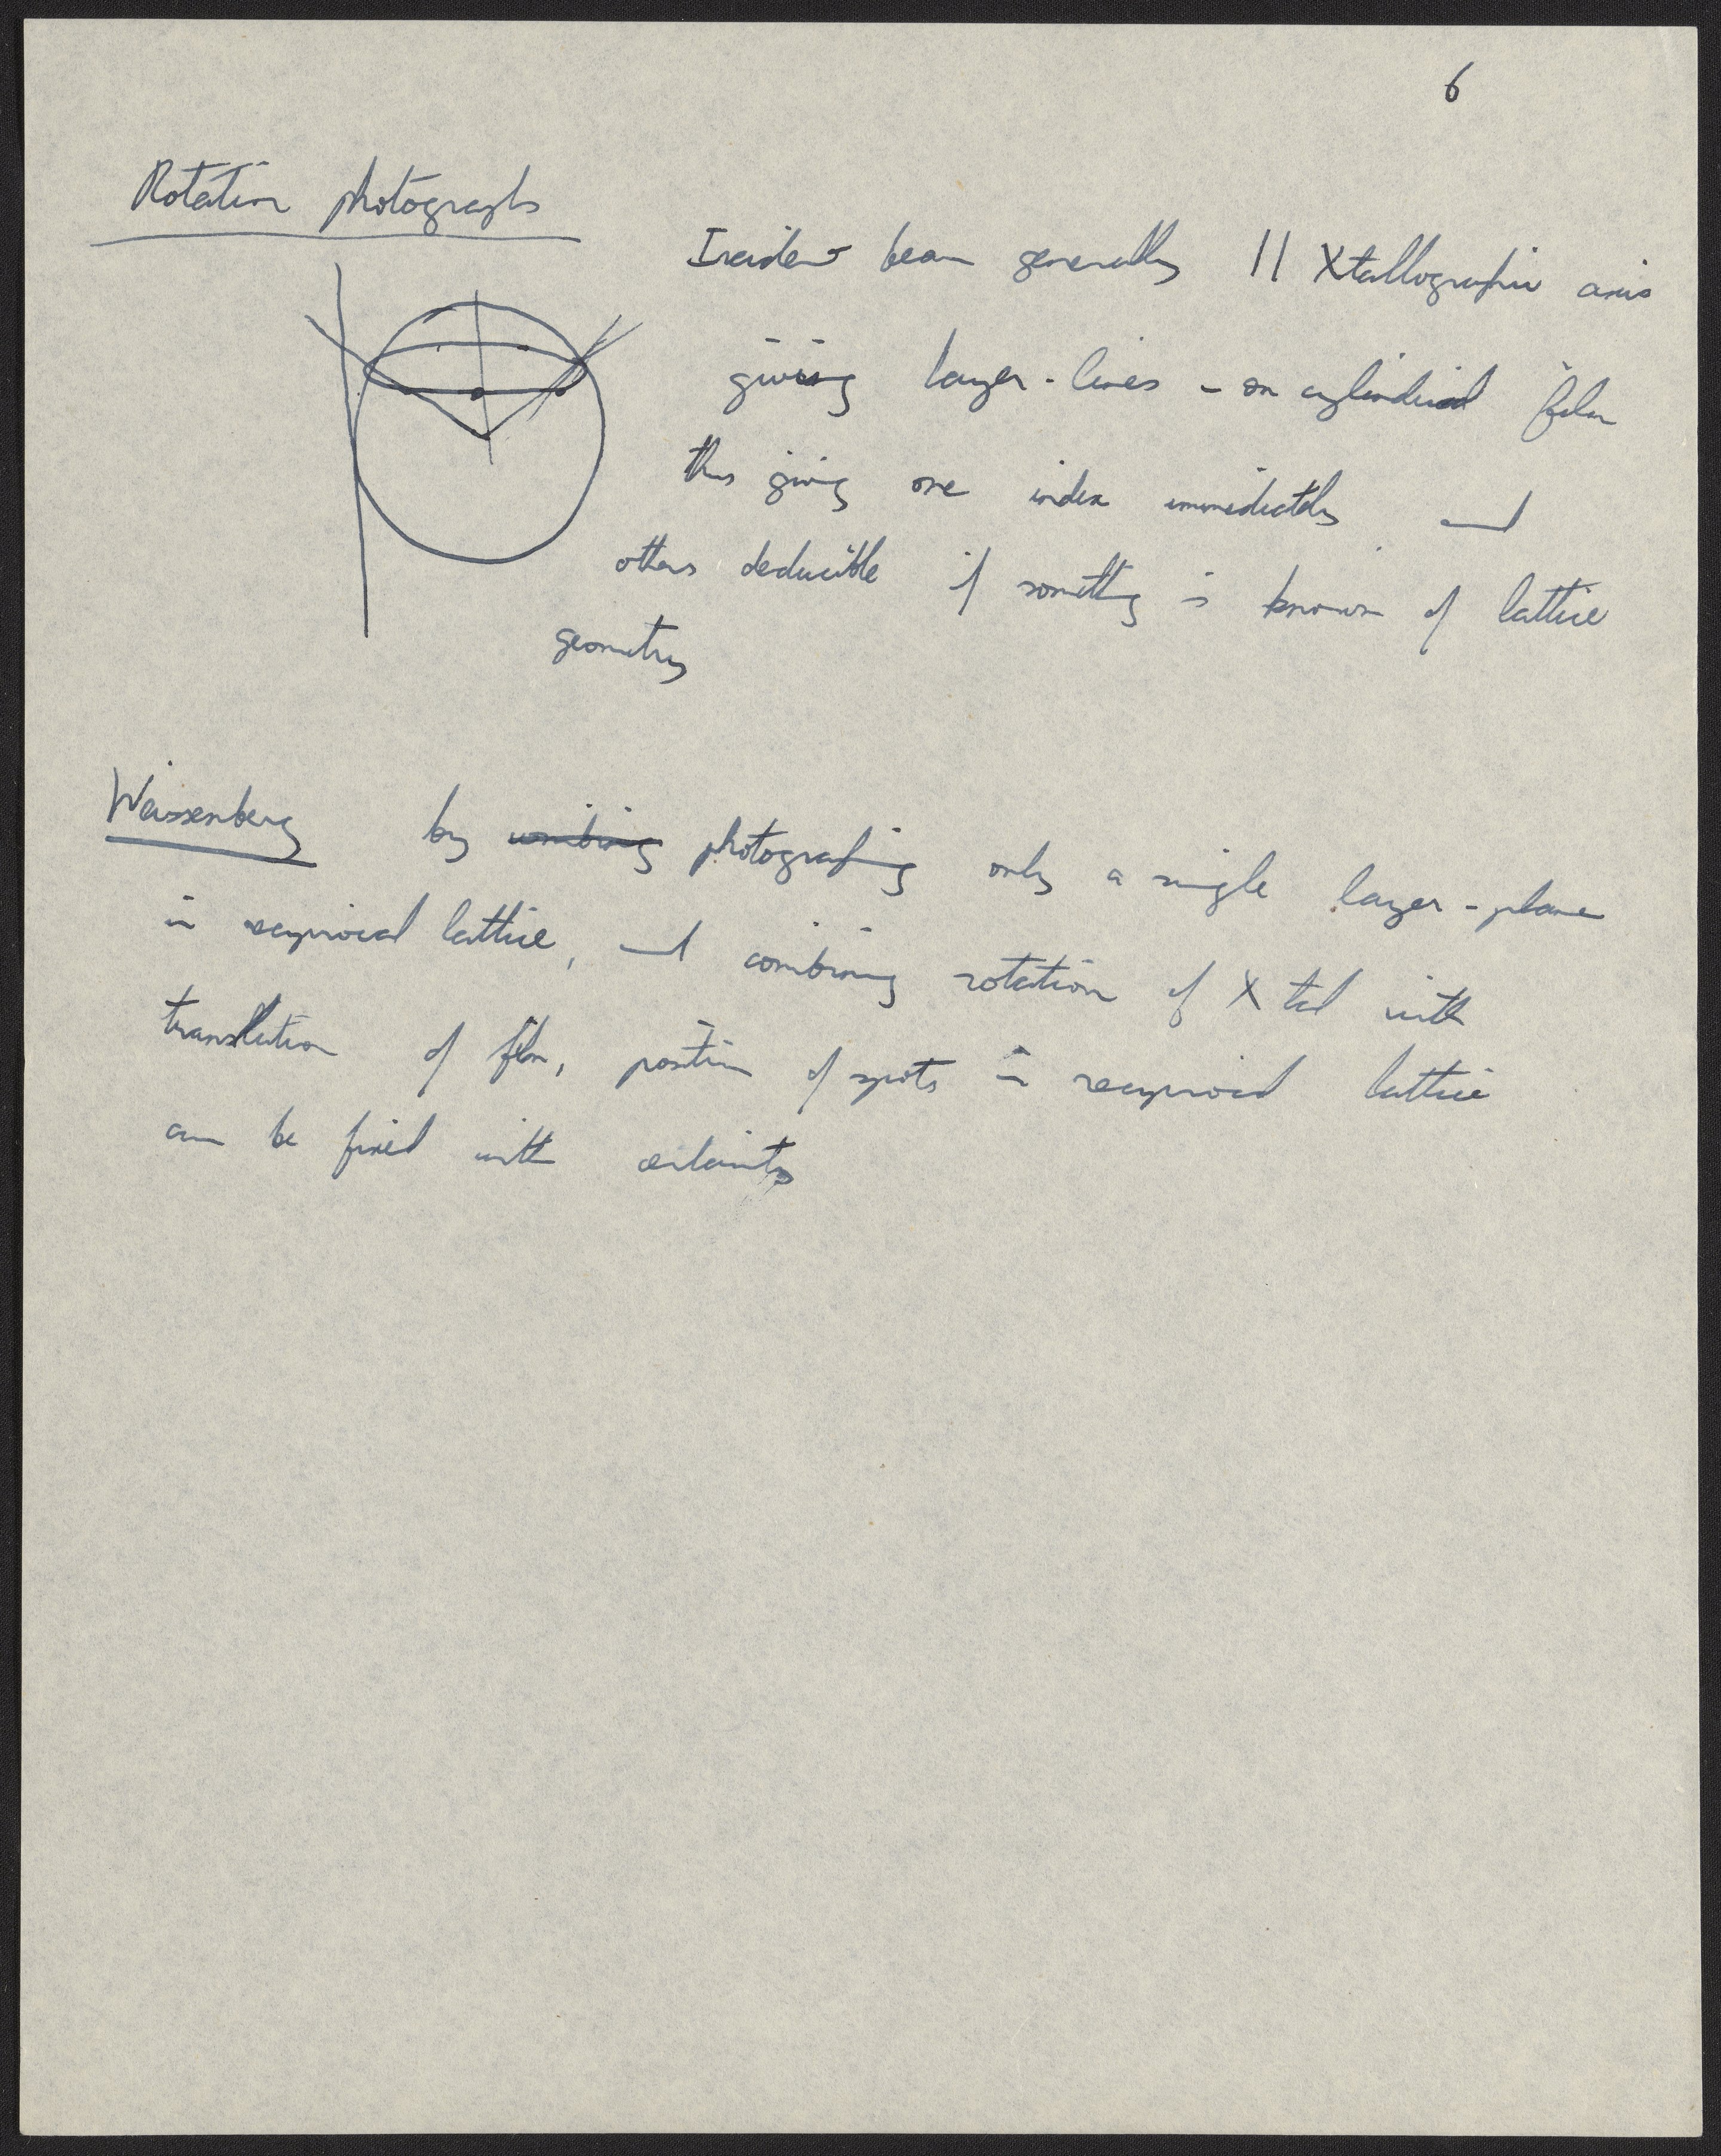 6
Rotation photographs
Incident beam generally || Xtallographic axis
giving layer-lines - on cylindrical film
thus giving one index immediately and
others deducible if something is known of lattice
geometry
Weissenberg by combining photographing only a single layer-plane
in reciprocal lattice, and combining rotation of Xtal with
translation of film, position of spots in reciprocal lattice
can be fixed with certainty